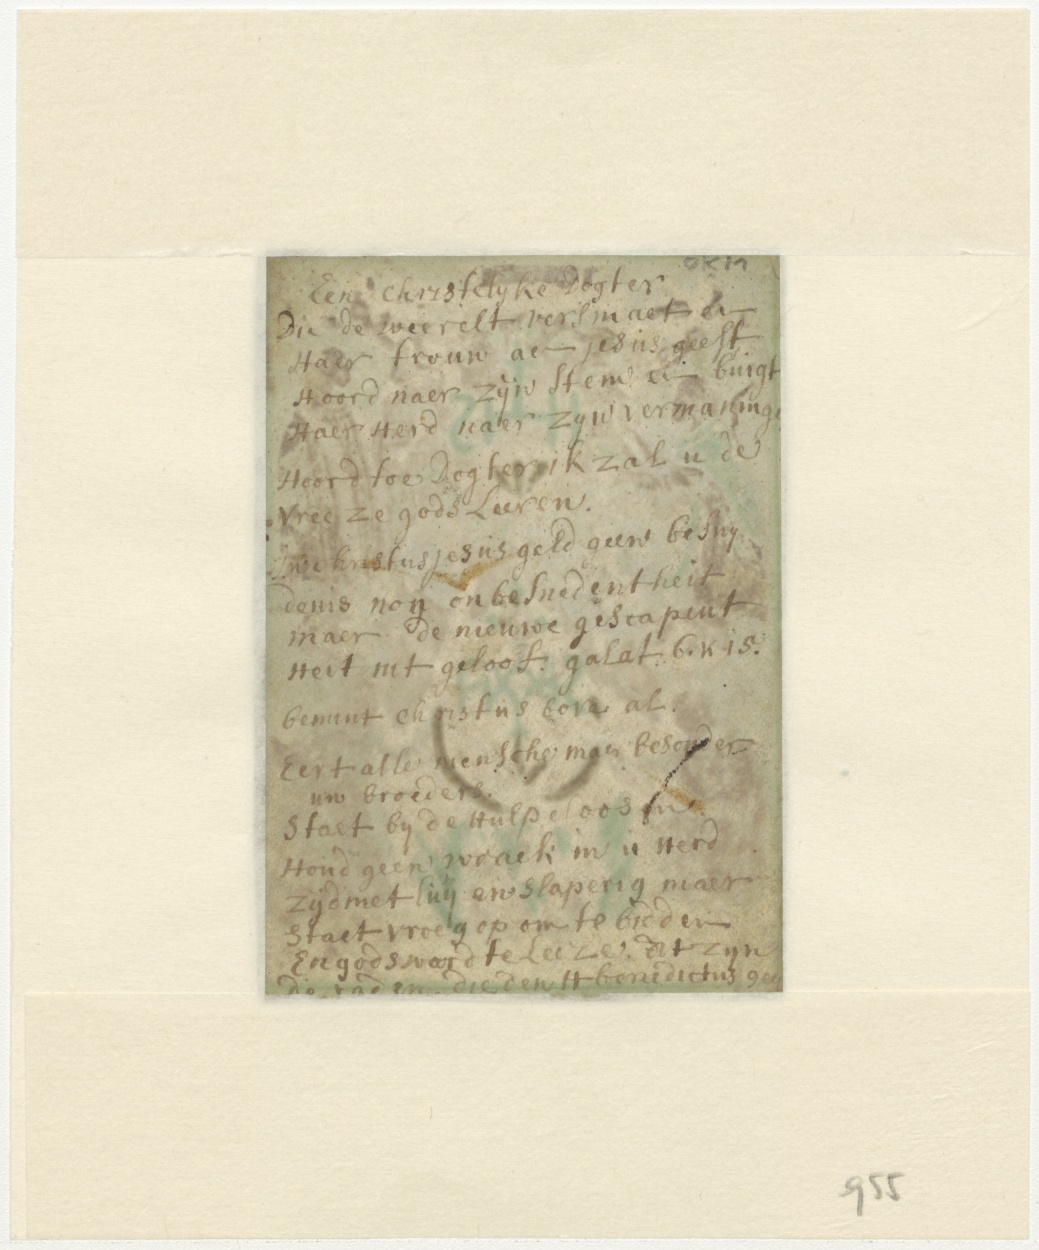 OKM
Een christelyke Dogter
Die de weerelt versmaet en
Haer trouw aen jesüs geeft
Hoord naer zÿn stem en buigt
Haer Herd naer zÿn vermaninge
Hoord toe Dogter ik zal u de
vree ze gods Leeren.
In christus jesüs geld geen besny
denis nog onbesnedentheit
maer de nieuwe gescapent
Heit mt geloof. galat. 6. K 15.
bemint christüs bove al.
Eert alle mensche maer besonder
uw broeders.
Staet by de Hulpeloosen
Houd geen wraek in u Herd
zÿd met lüy en slaperig maer
staet vroeg op om te bidden
En gods word te Leeze. Dit zyn
De raden die den H benedictus
955